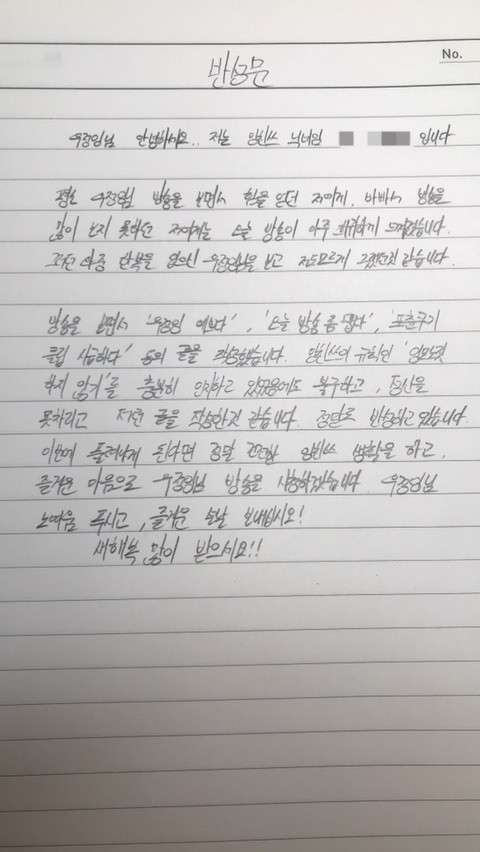 No.
반성문
우정잉님 안녕하세요.. 저는 잉친쓰 닉네임 입니다
평소 우정잉님 방송을 보면서 힘을 얻던 저에게, 바빠서 방송을
많이 보지 못하던 저에게는 오늘 방송이 아주 느껴졌습니다.
그러던 와중 한복을 입으신 우정잉님을 보고 저도모르게 그랬던것 같습니다.
방송을 보면서 '우정잉 예쁘다', '오늘 방송 폼 ', '포춘쿠키
클립 사랑하다' 등의 글을 작성했습니다. 잉친쓰의 규칙인
하지 않기'를 충분히 인지하고 있었음에도 불구하고, 정신을
못차리고 저런 글을 작성한것 같습니다. 정말로 반성하고 있습니다.
이번에 풀려나게 된다면 정말 잉친쓰 생활을 하고,
즐거운 마음으로 우정잉님 방송을 시청하겠습니다. 우정잉님
노여움 푸시고, 즐거운 설날 보내십시오!
새해복 많이 받으세요!!